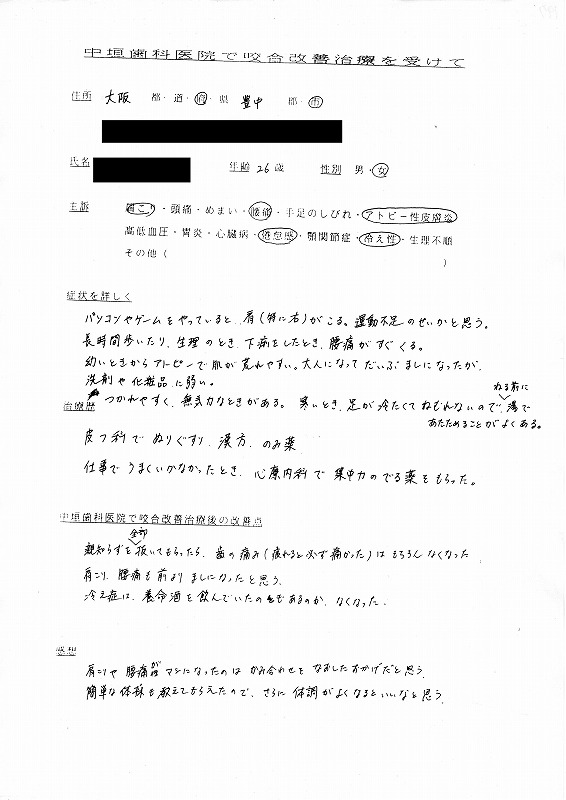 中垣歯科医院で咬合改善治療を受けて
住所 大阪 都・道・府・県 豊中 郡・市
氏名 年齢 26歳 性別 男・女
主訴 肩こり・頭痛・めまい・腰痛・手足のしびれ・アトピー性皮膚炎
高低血圧・胃炎・心臓病・倦怠感・顎関節症・冷え性・生理不順
その他( )
症状を詳しく
パソコンやゲームをやっていると、肩(特に右)がこる。運動不足のせいかと思う。
長時間歩いたり、生理のとき、下痢をしたとき、腰痛がすぐくる。
幼いときからアトピーで肌が荒れやすい。大人になってだいぶましになったが、
洗剤や化粧品に弱い。
つかれやすく、無気力なときがある。寒いとき、足が冷たくてねむれないので、ねる前に湯で
あたためることがよくある。
治療歴
皮フ科でぬりぐすり、漢方、のみ薬
仕事でうまくいかなかったとき、心療内科で集中力のでる薬をもらった。
中垣歯科医院で咬合改善治療後の改善点
親知らずを全部抜いてもらったら、歯の痛み(疲れると必ず痛かった)はもちろんなくなった
肩こり、腰痛も前よりましになったと思う。
冷え症は、養命酒を飲んでいたのもあるのか、なくなった。
感想
肩こりや腰痛がマシになったのはかみ合わせをなおしたおかげだと思う。
簡単な体操も教えてもらえたので、さらに体調がよくなるといいなと思う。